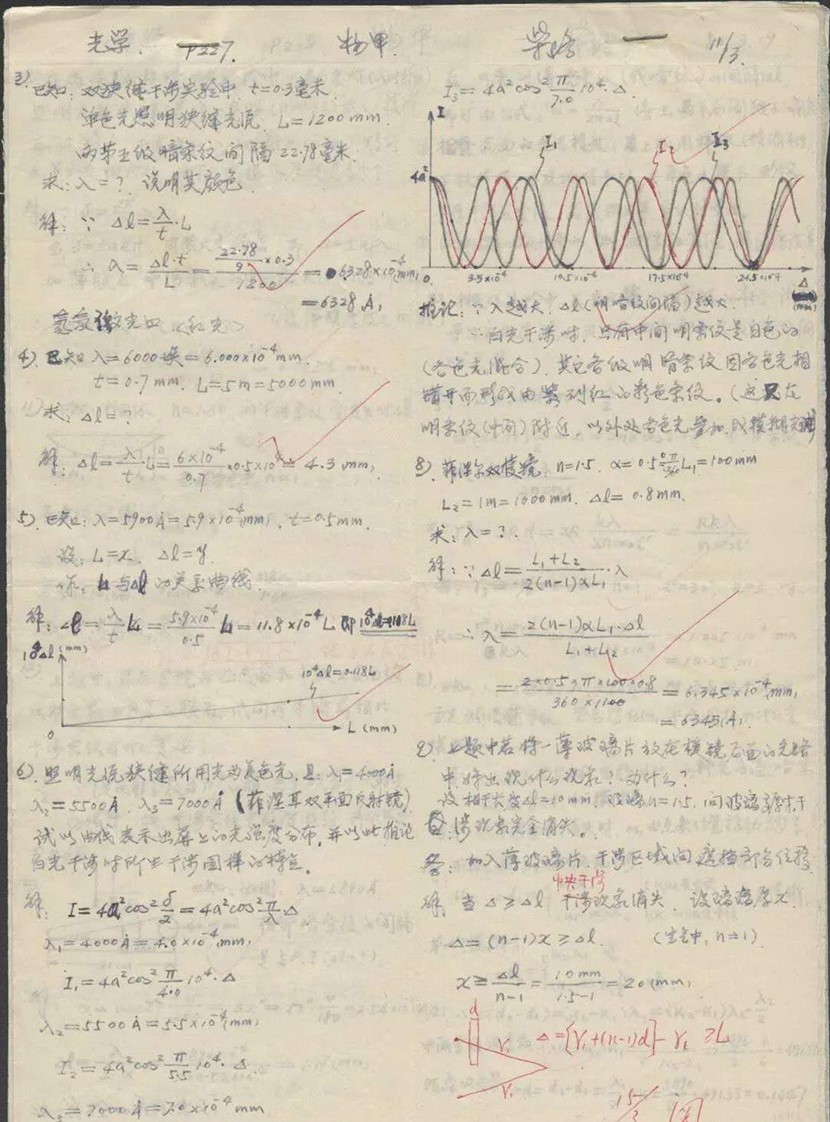 光学. P227. 物甲. 11/3.
3) 已知: 双狭缝干涉实验中, t=0.3毫米.
单色光照明狭缝光源, L=1200mm.
两第五级暗条纹间隔22.78毫米.
求: λ=? 说明其颜色.
解: ∵ Δl=λ/t·L
∴ λ=Δl·t/L=(22.78/9×0.3)/1200=6328×10⁻⁴mm,
=6328Å,
氦氖激光口 (红光)
4) 已知 λ=6000埃=6.000×10⁻⁴mm.
t=0.7mm. L=5m=5000mm.
求: Δl=?
解: Δl=λ/t·L=6×10⁻⁴/0.7×0.5×10⁴=4.3mm,
5) 已知: λ=5900Å=5.9×10⁻⁴mm, t=0.5mm.
设: L=x. Δl=y.
求: L与Δl的关系曲线.
解: Δl=λ/t L=5.9×10⁻⁴/0.5 L=11.8×10⁻⁴L 即 10⁴Δl=118L
10⁴Δl (mm)
10⁴Δl=0.118L
0
L (mm)
6) 照明光源狭缝所用光为复色光, 是: λ₁=4000Å
λ₂=5500Å. λ₃=7000Å (菲涅耳双平面反射镜)
试以曲线表示出屏上的光强度分布, 并以此推论
白光干涉时所生干涉图样的特点.
解: I=4a²cos²δ/2=4a²cos²π/λ Δ
λ₁=4000Å=4.0×10⁻⁴mm,
I₁=4a²cos²π/4.0 10⁴·Δ
λ₂=5500Å=5.5×10⁻⁴mm,
I₂=4a²cos²π/5.5 10⁴·Δ.
λ₃=7000Å=7.0×10⁻⁴mm
I₃=4a²cos²π/7.0 10⁴·Δ.
I
I₁ I₂ I₃
4a²
0 3.5×10⁻⁴ 10.5×10⁻⁴ 17.5×10⁻⁴ 24.5×10⁻⁴ Δ
推论: ∵ λ越大, Δl(明暗纹间隔)越大.
∴白光干涉时, 只有中间明条纹是白色的
(各色光混合), 其它各级明暗条纹因各色光相
错开而形成由紫到红的彩色条纹. (这只在
明条纹(中间)附近, 以外处各色光叠加, 成模糊
8) 菲涅尔双棱镜, n=1.5. α=0.5° L₁=100mm
L₂=1m=1000mm. Δl=0.8mm.
求: λ=?
解: ∵ Δl=L₁+L₂/2(n-1)αL₁·λ
∴ λ=2(n-1)αL₁·Δl/L₁+L₂
=2×0.5×π×100×0.8/360×1100=6.345×10⁻⁴mm,
=6345(Å).
9) 上题中若将一薄玻璃片放在棱镜后面的光路
中将出现什么现象? 为什么?
设相干长度Δl=10mm, 玻璃n=1.5, 问玻璃多厚时干
涉现象完全消失.
答: 加入薄玻璃片, 干涉区域向遮挡部分位移
中央干涉
解: 当 Δ≥Δl 干涉现象消失. 设玻璃厚x.
Δ=(n-1)x≥Δl. (空气中, n=1).
x≥Δl/n-1=10mm/1.5-1=20(mm)
d
r₁
r₂
Δ=[r₁+(n-1)d]-r₂≥L
15/3